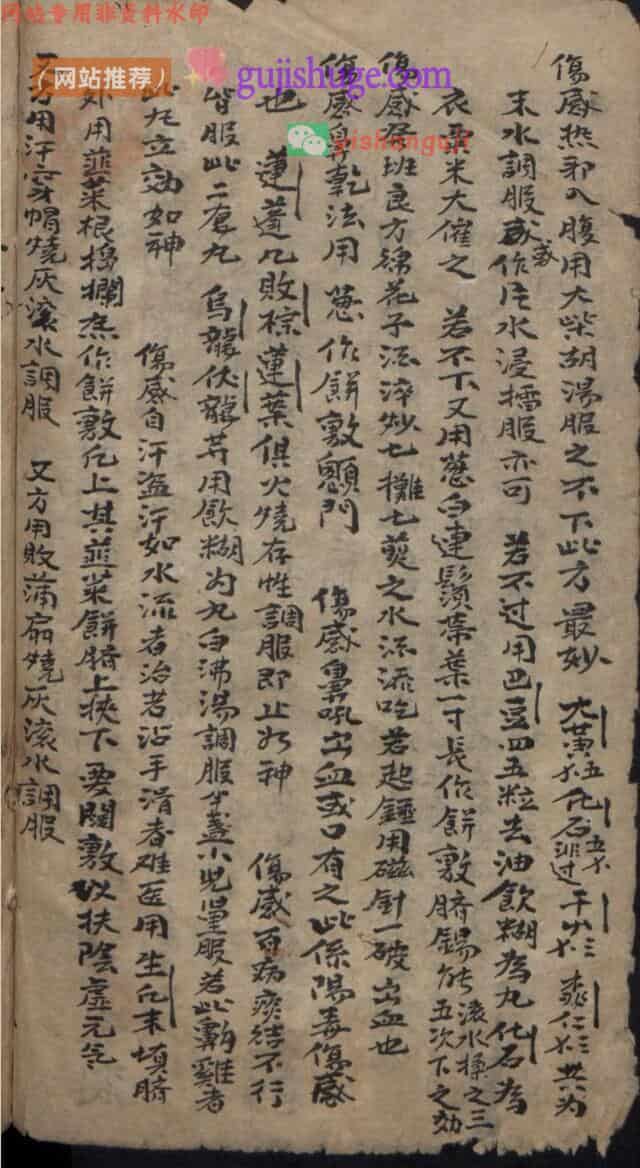 网站专用非资料水印
(网站推荐)
gujishuge.com
yishanguji
傷感热邪入腹用大柴胡湯服之不下此方最妙 大黄 化石 共为
末水調服或作片水浸擂服亦可 若不过用巴豆四五粒去油飲糊為丸化石為
衣 米大催之 若不下又用葱白連鬚蒂葉一寸長作餅敷臍 滚水 之三五次下之効
傷感 班良方綿花子 炒七 七 之水 吃若起 用磁針一破出血也
傷感鼻乾法用葱作餅敷顖門 傷感鼻吼出血或口有之此係陽毒傷感
也 蓮蓬几敗棕蓮葉俱火燒存性調服即止如神 傷感百病痰结不行
皆服此二 丸 烏龍伏龍 用飲糊为丸白沸湯調服半盞小児量服若此 難者
此丸立効如神 傷感自汗盗汗如水流者治若沾手滑者难医用生 末填臍
外用韮菜根搗爛 作餅敷 上其韮菜餅臍上挾下要闊敷以扶陰虚元气
又方用汗 帽燒灰滚水調服 又方用敗蒲扇燒灰滚水調服